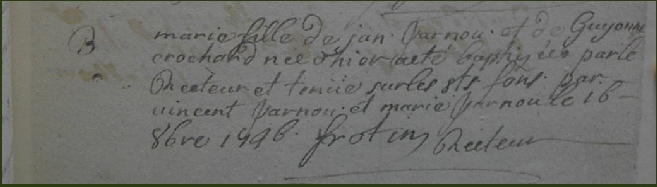 B
marie fille de jan Varnou et de Guyonne
crochard née d'hior a eté baptizée par le
Recteur et tenüe sur les sts fons par
vincent Varnou et marie Varnou le 16
8bre 1746. frotin Recteur